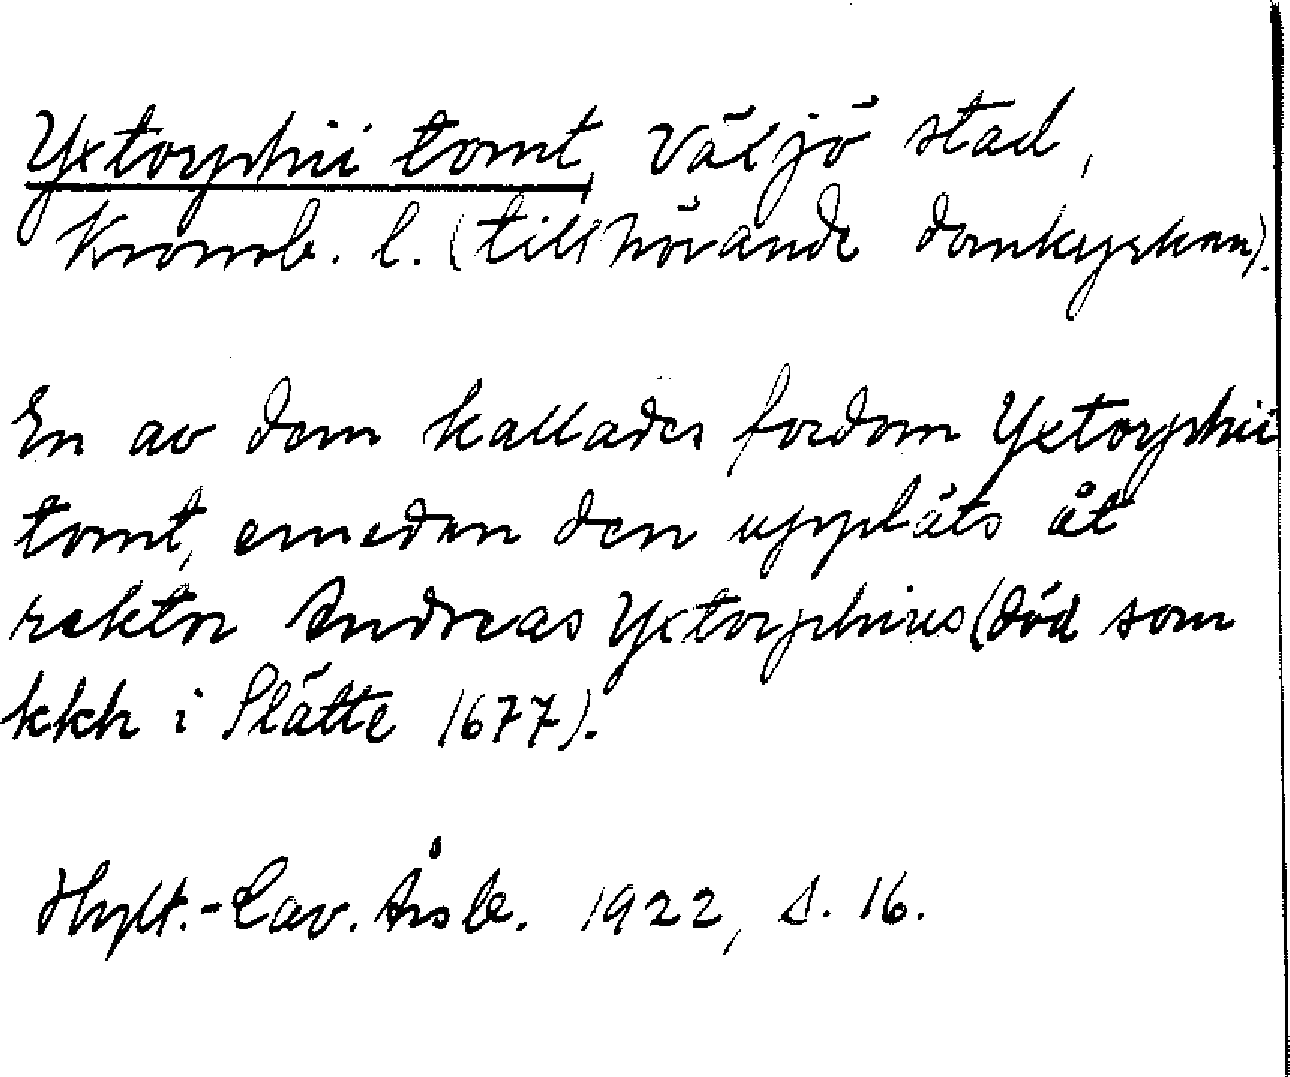 Yxtorphii tomt, Växjö stad,
Kronob. l. (tillhörande domkyrkan).
En av dem kallades fordom Yxtorphii
tomt, emedan den uppläts åt
rektor Andreas Yxtorphius (död som
kkh i Slätte 1677).
Hylt.-Cav. Årsb. 1922, s. 16.